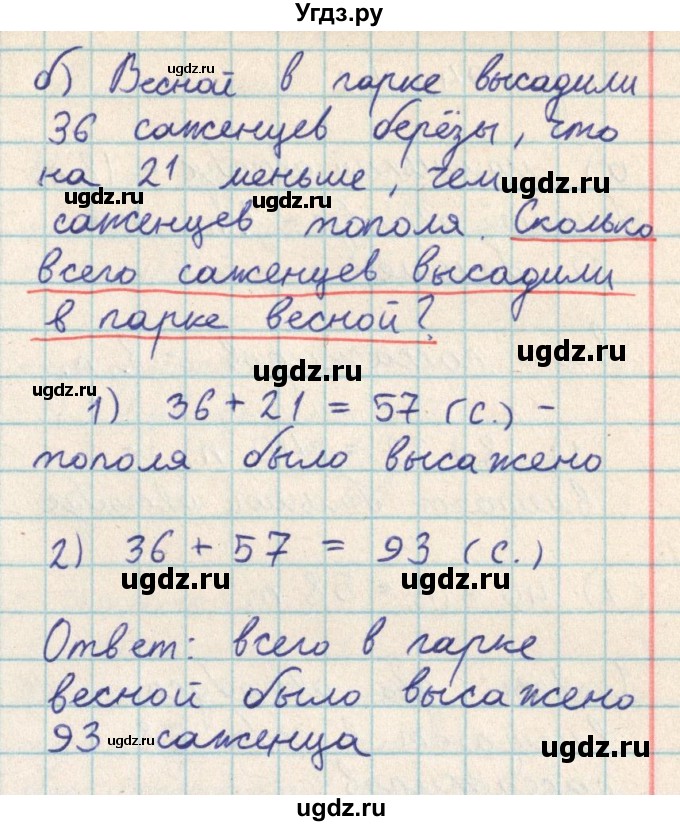 Угдз.ру
б) Весной в парке высадили
36 саженцев берёзы, что
на 21 меньше, чем
саженцев тополя. Сколько
всего саженцев высадили
в парке весной?
1) 36 + 21 = 57 (с.) -
тополя было высажено
2) 36 + 57 = 93 (с.)
Ответ: всего в парке
весной было высажено
93 саженца
ugdz.ru
ugdz.ru
ugdz.ru
ugdz.ru
ugdz.ru
ugdz.ru
ugdz.ru
ugdz.ru
ugdz.ru
ugdz.ru
ugdz.ru
ugdz.ru